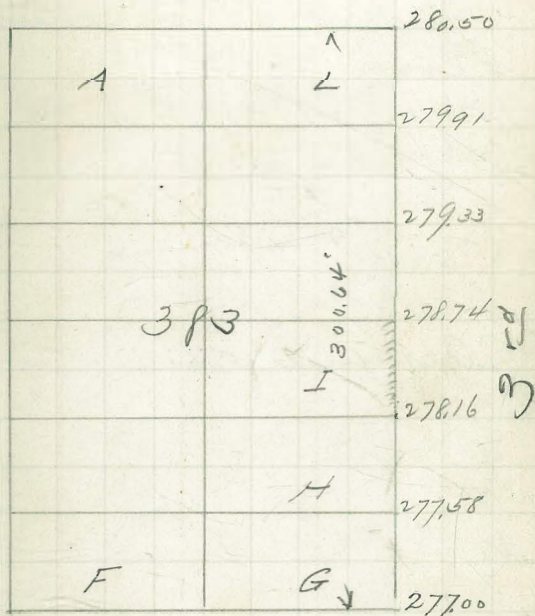 280.50
A L
279.91
279.33
300.64'
383
278.74
3rd
I
278.16
H
277.58
F G
277.00